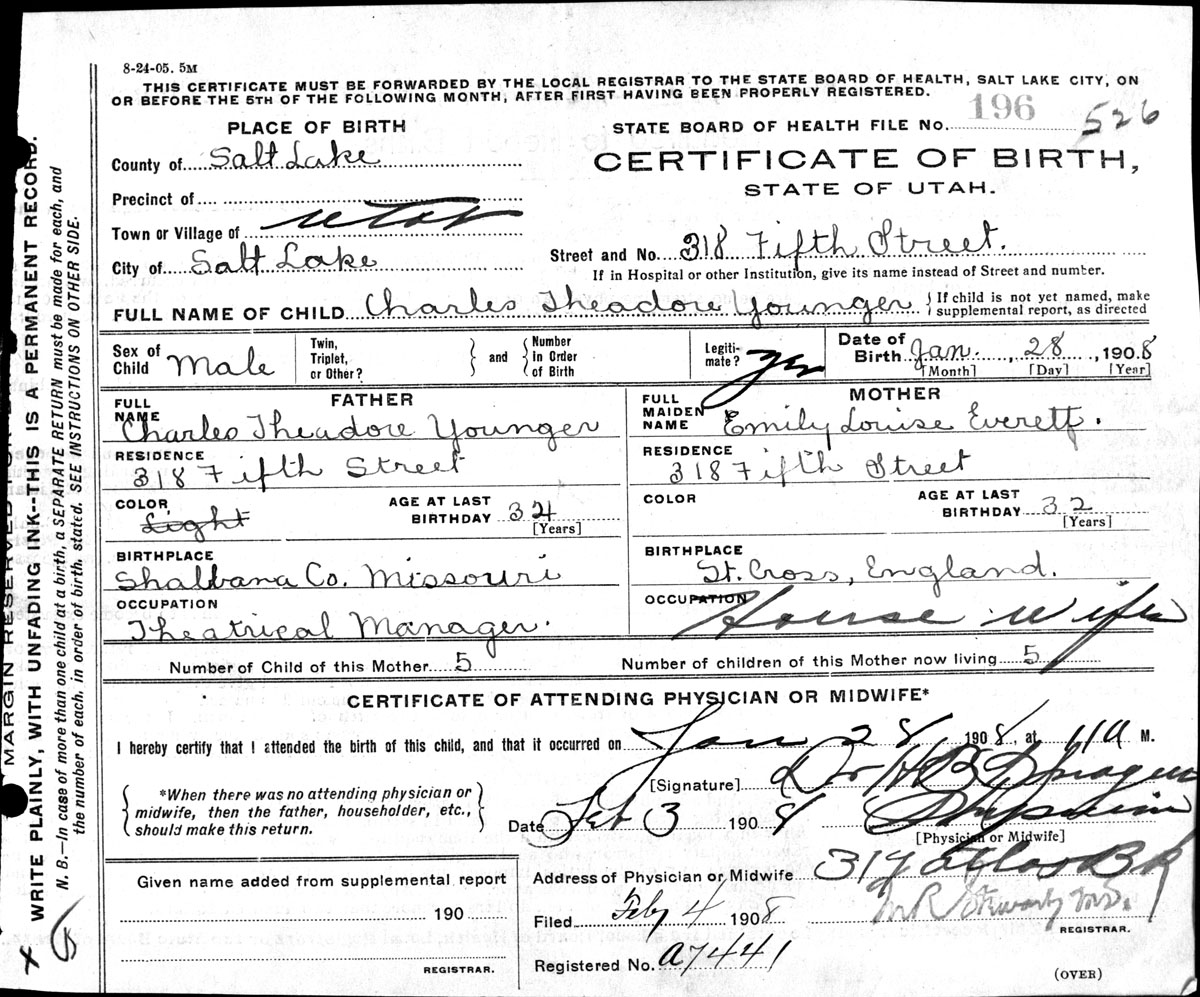 8-24-05. 5M
THIS CERTIFICATE MUST BE FORWARDED BY THE LOCAL REGISTRAR TO THE STATE BOARD OF HEALTH, SALT LAKE CITY, ON
OR BEFORE THE 5TH OF THE FOLLOWING MONTH, AFTER FIRST HAVING BEEN PROPERLY REGISTERED.
PLACE OF BIRTH
STATE BOARD OF HEALTH FILE No. 196 526
County of Salt Lake
CERTIFICATE OF BIRTH,
STATE OF UTAH.
Precinct of
Town or Village of Utah
City of Salt Lake
Street and No. 318 Fifth Street.
If in Hospital or other Institution, give its name instead of Street and number.
FULL NAME OF CHILD Charles Theadore Younger { If child is not yet named, make supplemental report, as directed
Sex of Child Male Twin, Triplet, or Other? } and { Number In Order of Birth Legiti-mate? yes Date of Birth Jan. 28, 1908 [Month] [Day] [Year]
FATHER
MOTHER
FULL NAME Charles Theadore Younger
FULL MAIDEN NAME Emily Louise Everett.
RESIDENCE 318 Fifth Street
RESIDENCE 318 Fifth Street
COLOR Light AGE AT LAST BIRTHDAY 34 [Years]
COLOR AGE AT LAST BIRTHDAY 32 [Years]
BIRTHPLACE Shalbana Co. Missouri
BIRTHPLACE St. Cross, England.
OCCUPATION Theatrical Manager.
OCCUPATION House wife
Number of Child of this Mother 5 Number of children of this Mother now living 5
CERTIFICATE OF ATTENDING PHYSICIAN OR MIDWIFE*
I hereby certify that I attended the birth of this child, and that it occurred on Jan 28 1908, at 11 A M.
{ *When there was no attending physician or midwife, then the father, householder, etc., should make this return. }
[Signature] Dr H B Sprague
Date Feb 3 1908
[Physician or Midwife]
Given name added from supplemental report
190
REGISTRAR.
Address of Physician or Midwife 319 Atlas Bk
Filed Feby 4 1908
REGISTRAR.
Registered No. A7441
(OVER)
MARGIN RESERVED
WRITE PLAINLY, WITH UNFADING INK--THIS IS A PERMANENT RECORD.
N. B.—In case of more than one child at a birth, a SEPARATE RETURN must be made for each, and
the number of each, in order of birth, stated. SEE INSTRUCTIONS ON OTHER SIDE.